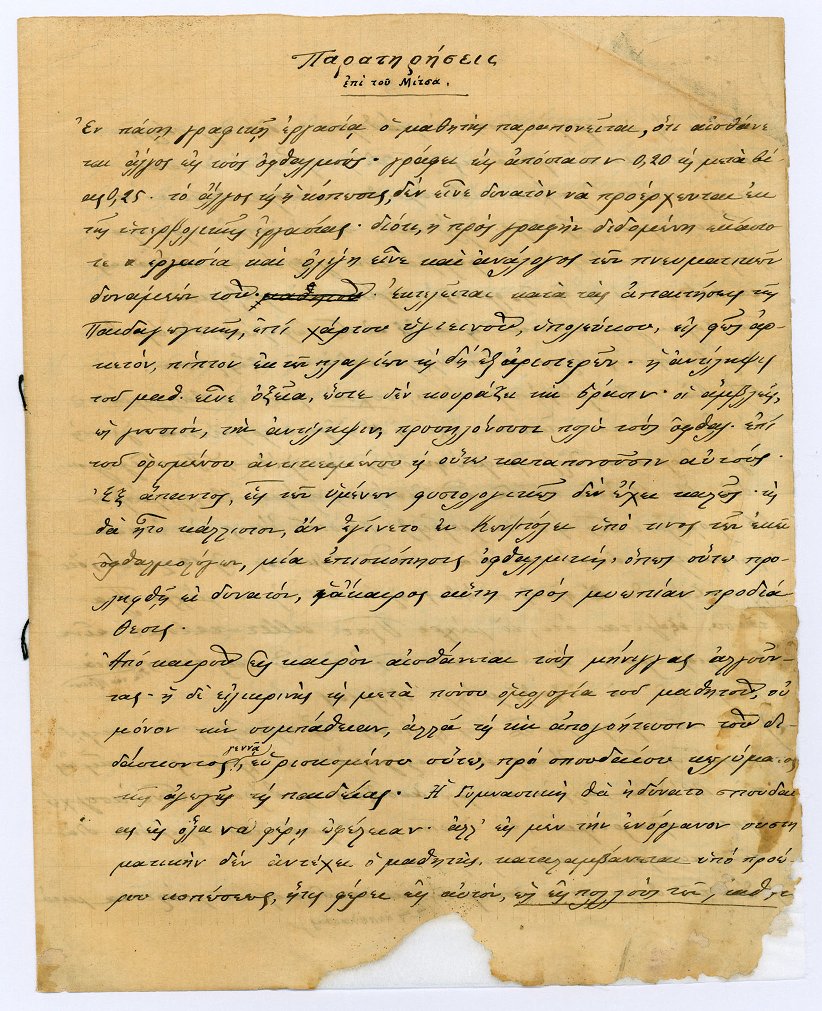 Παρατηρήσεις
ἐπὶ τοῦ Μίτσα.
Ἐν πάσῃ γραφικῇ ἐργασίᾳ ὁ μαθητὴς παραπονεῖται, ὅτι αἰσθάνε
ται ἄλγος εἰς τοὺς ὀφθαλμούς· γράφει εἰς ἀπόστασιν 0,20 ἢ μετὰ βί-
ας 0,25. τὸ ἄλγος ἢ ἡ κόπωσις, δὲν εἶνε δυνατὸν νὰ προέρχενται ἐκ
τῆς ὑπερβολικῆς ἐργασίας· διότι, ἡ πρὸς γραφὴν διδομένη ἑκάστο
τε ἐργασία καὶ ὀλίγη εἶνε καὶ ἀνάλογος τῶν πνευματικῶν
δυνάμεών του. Ἐκτελεῖται κατὰ τὰς ἀπαιτήσεις τῆς
Παιδαγωγικῆς, ἐπὶ χάρτου ὑγιεινοῦ, ὑπολεύκου, εἰς φῶς ἀρ-
κετόν, πίπτον ἐκ τῶν πλαγίων ἢ δὴ ἐξ ἀριστερῶν. ἡ ἀντίληψις
τοῦ μαθ. εἶνε ὀξεῖα, ὥστε δὲν κουράζει τὴν ὅρασιν· οἱ ἀμβλεῖς,
ὡς γνωστόν, τὴν ἀντίληψιν, προσηλόνουσι πολὺ τοὺς ὀφθαλ. ἐπὶ
τοῦ ὁρωμένου ἀντικειμένου ἢ οὕτω καταπονοῦσιν αὐτούς.
Ἐξ ἅπαντος, εἷς τῶν ὑμένων φυσιολογικῶς δὲν ἔχει καλῶς· ἢ
θὰ ἦτο κάλλιστον, ἂν ἐγίνετο ἐν Κων/πόλει ὑπό τινος τῶν ἐκεῖ
ὀφθαλμολόγων, μία ἐπισκόπησις ὀφθαλμική· ὅπως οὕτω προ-
ληφθῇ εἰ δυνατόν, ἡ ἄκαιρος αὕτη πρὸς μυωπίαν προδιά
θεσις.
Ἀπὸ καιροῦ εἰς καιρὸν αἰσθάνεται τοὺς μήνιγγας ἀλγοῦν-
τας· ἡ δὲ εἰλικρινὴς ἢ μετὰ πόνου ὁμολογία τοῦ μαθητοῦ, οὐ
μόνον τὴν συμπάθειαν, ἀλλὰ ἢ τὴν ἀπογοήτευσιν τοῦ δι-
δάσκοντος γεννᾷ, εὑρισκομένου οὕτω, πρὸ σπουδαίου κωλύματος
τῆς ἀγωγῆς ἢ παιδείας. Ἡ Γυμναστικὴ θὰ ἠδύνατο σπουδαί
ως εἰς ὅλα νὰ φέρῃ ὠφέλειαν· ἀλλ' εἰς μὲν τὴν ἐνόργανον συστη
ματικὴν δὲν ἀντέχει ὁ μαθητής, καταλαμβάνεται ὑπὸ προώ-
ρου κοπώσεως, ἥτις φέρει εἰς αὐτόν, ὡς εἰς πολλοὺς τῶν